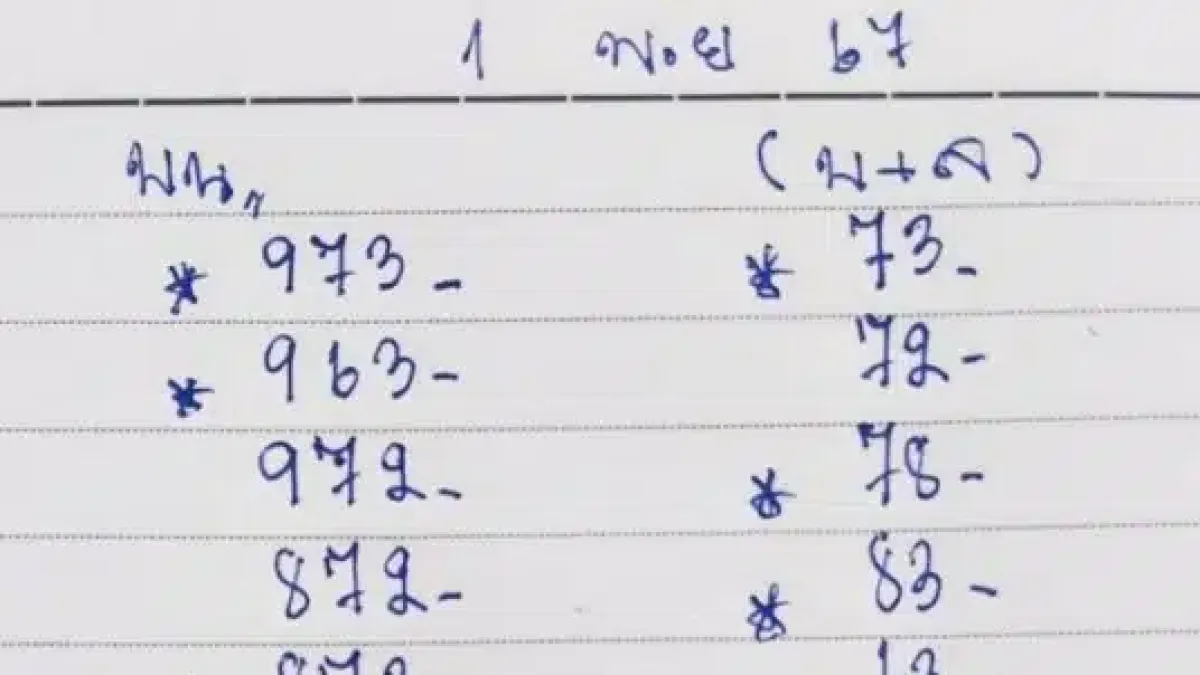 1 พ.ย 67
บน. (บ+ล)
* 973- * 73-
* 963- 72-
972- * 78-
872- * 83-